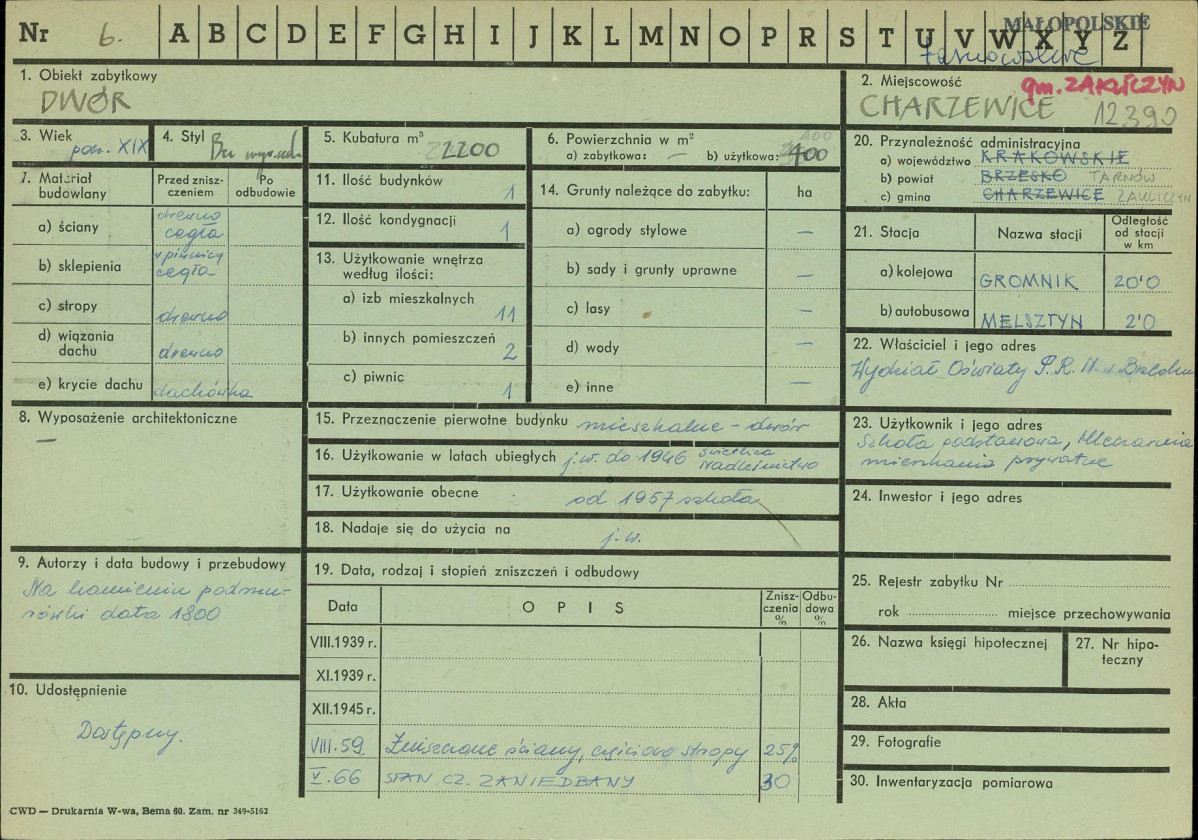 Nr 6. A B C D E F G H I J K L M N O P R S T U V W X Y Z
MAŁOPOLSKIE
tarnowskie
1. Obiekt zabytkowy
DWÓR
2. Miejscowość
gm. ZAKLICZYN
CHARZEWICE 12390
3. Wiek
pocz. XIX
4. Styl
5. Kubatura m³
2200
6. Powierzchnia w m²
a) zabytkowa: — b) użytkowa: 400
7. Materiał budowlany
Przed zniszczeniem
Po odbudowie
a) ściany
drewno
cegła
b) sklepienia
w piwnicy
cegła
c) stropy drewno
d) wiązania dachu drewno
e) krycie dachu dachówka
8. Wyposażenie architektoniczne
—
9. Autorzy i data budowy i przebudowy
Na kamieniu podmu-
rówki data 1800
10. Udostępnienie
Dostępny.
11. Ilość budynków 1
12. Ilość kondygnacji 1
13. Użytkowanie wnętrza według ilości:
a) izb mieszkalnych 11
b) innych pomieszczeń 2
c) piwnic 1
14. Grunty należące do zabytku: ha
a) ogrody stylowe —
b) sady i grunty uprawne —
c) lasy —
d) wody —
e) inne —
15. Przeznaczenie pierwotne budynku mieszkalne – dwór
16. Użytkowanie w latach ubiegłych j.w. do 1946 świetlica
Nadleśnictwo
17. Użytkowanie obecne od 1957 szkoła
18. Nadaje się do użycia na j.w.
19. Data, rodzaj i stopień zniszczeń i odbudowy
Data OPIS Zniszczenia % Odbudowa %
VIII.1939 r.
XI.1939 r.
XII.1945 r.
VIII.59. Zniszczone ściany, częściowo stropy 25%
V.66 STAN CZ. ZANIEDBANY 30
20. Przynależność administracyjna
a) województwo KRAKOWSKIE
b) powiat BRZESKO TARNÓW
c) gmina CHARZEWICE ZAKLICZYN
21. Stacja Nazwa stacji Odległość od stacji w km
a) kolejowa GROMNIK 20'0
b) autobusowa MELSZTYN 2'0
22. Właściciel i jego adres
Wydział Oświaty P.R.N. w Brzesku
23. Użytkownik i jego adres
Szkoła podstawowa, Mleczarnia
mieszkania prywatne
24. Inwestor i jego adres
25. Rejestr zabytku Nr
rok miejsce przechowywania
26. Nazwa księgi hipotecznej
27. Nr hipo-
teczny
28. Akta
29. Fotografie
30. Inwentaryzacja pomiarowa
CWD — Drukarnia W-wa, Bema 60. Zam. nr 349-5162